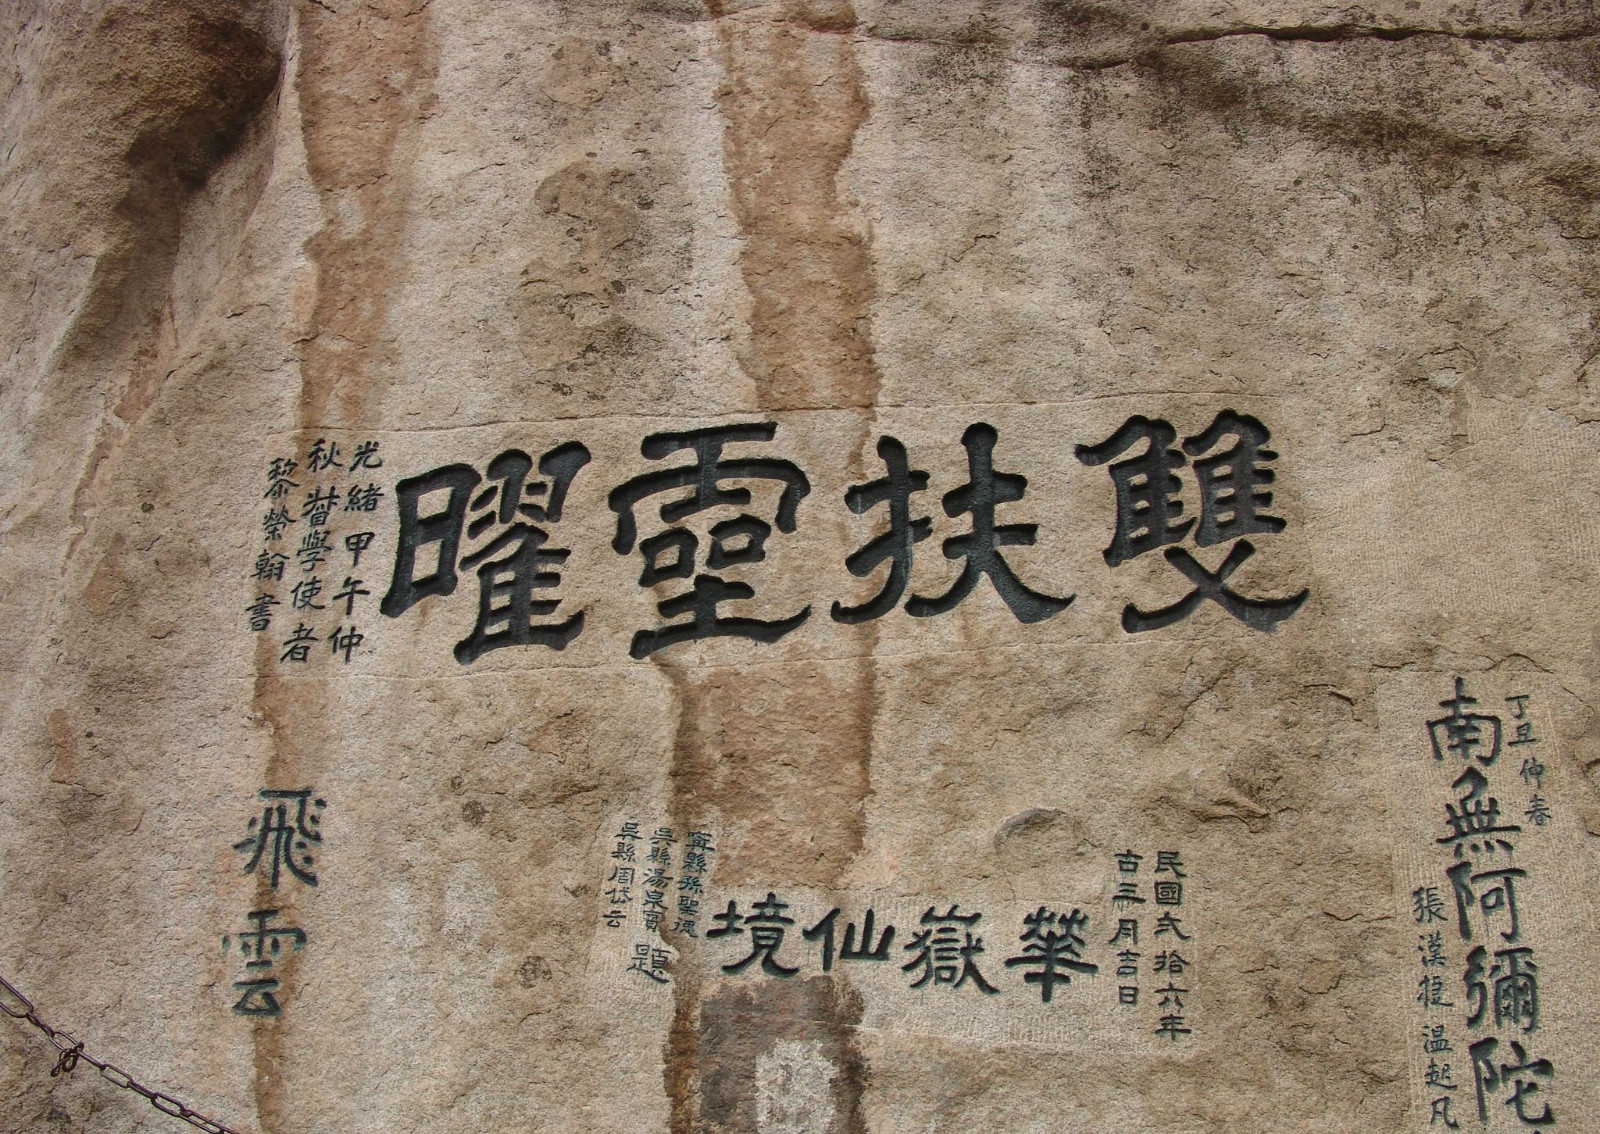 雙扶靈曜
光緒甲午仲
秋督學使者
黎榮翰書
丁丑仲春
南無阿彌陀
張漢捷溫起凡
民國弍拾六年
古三月吉日
華嶽仙境
寧縣孫聖德
吳縣湯泉賓
吳縣周岱云
題
飛雲